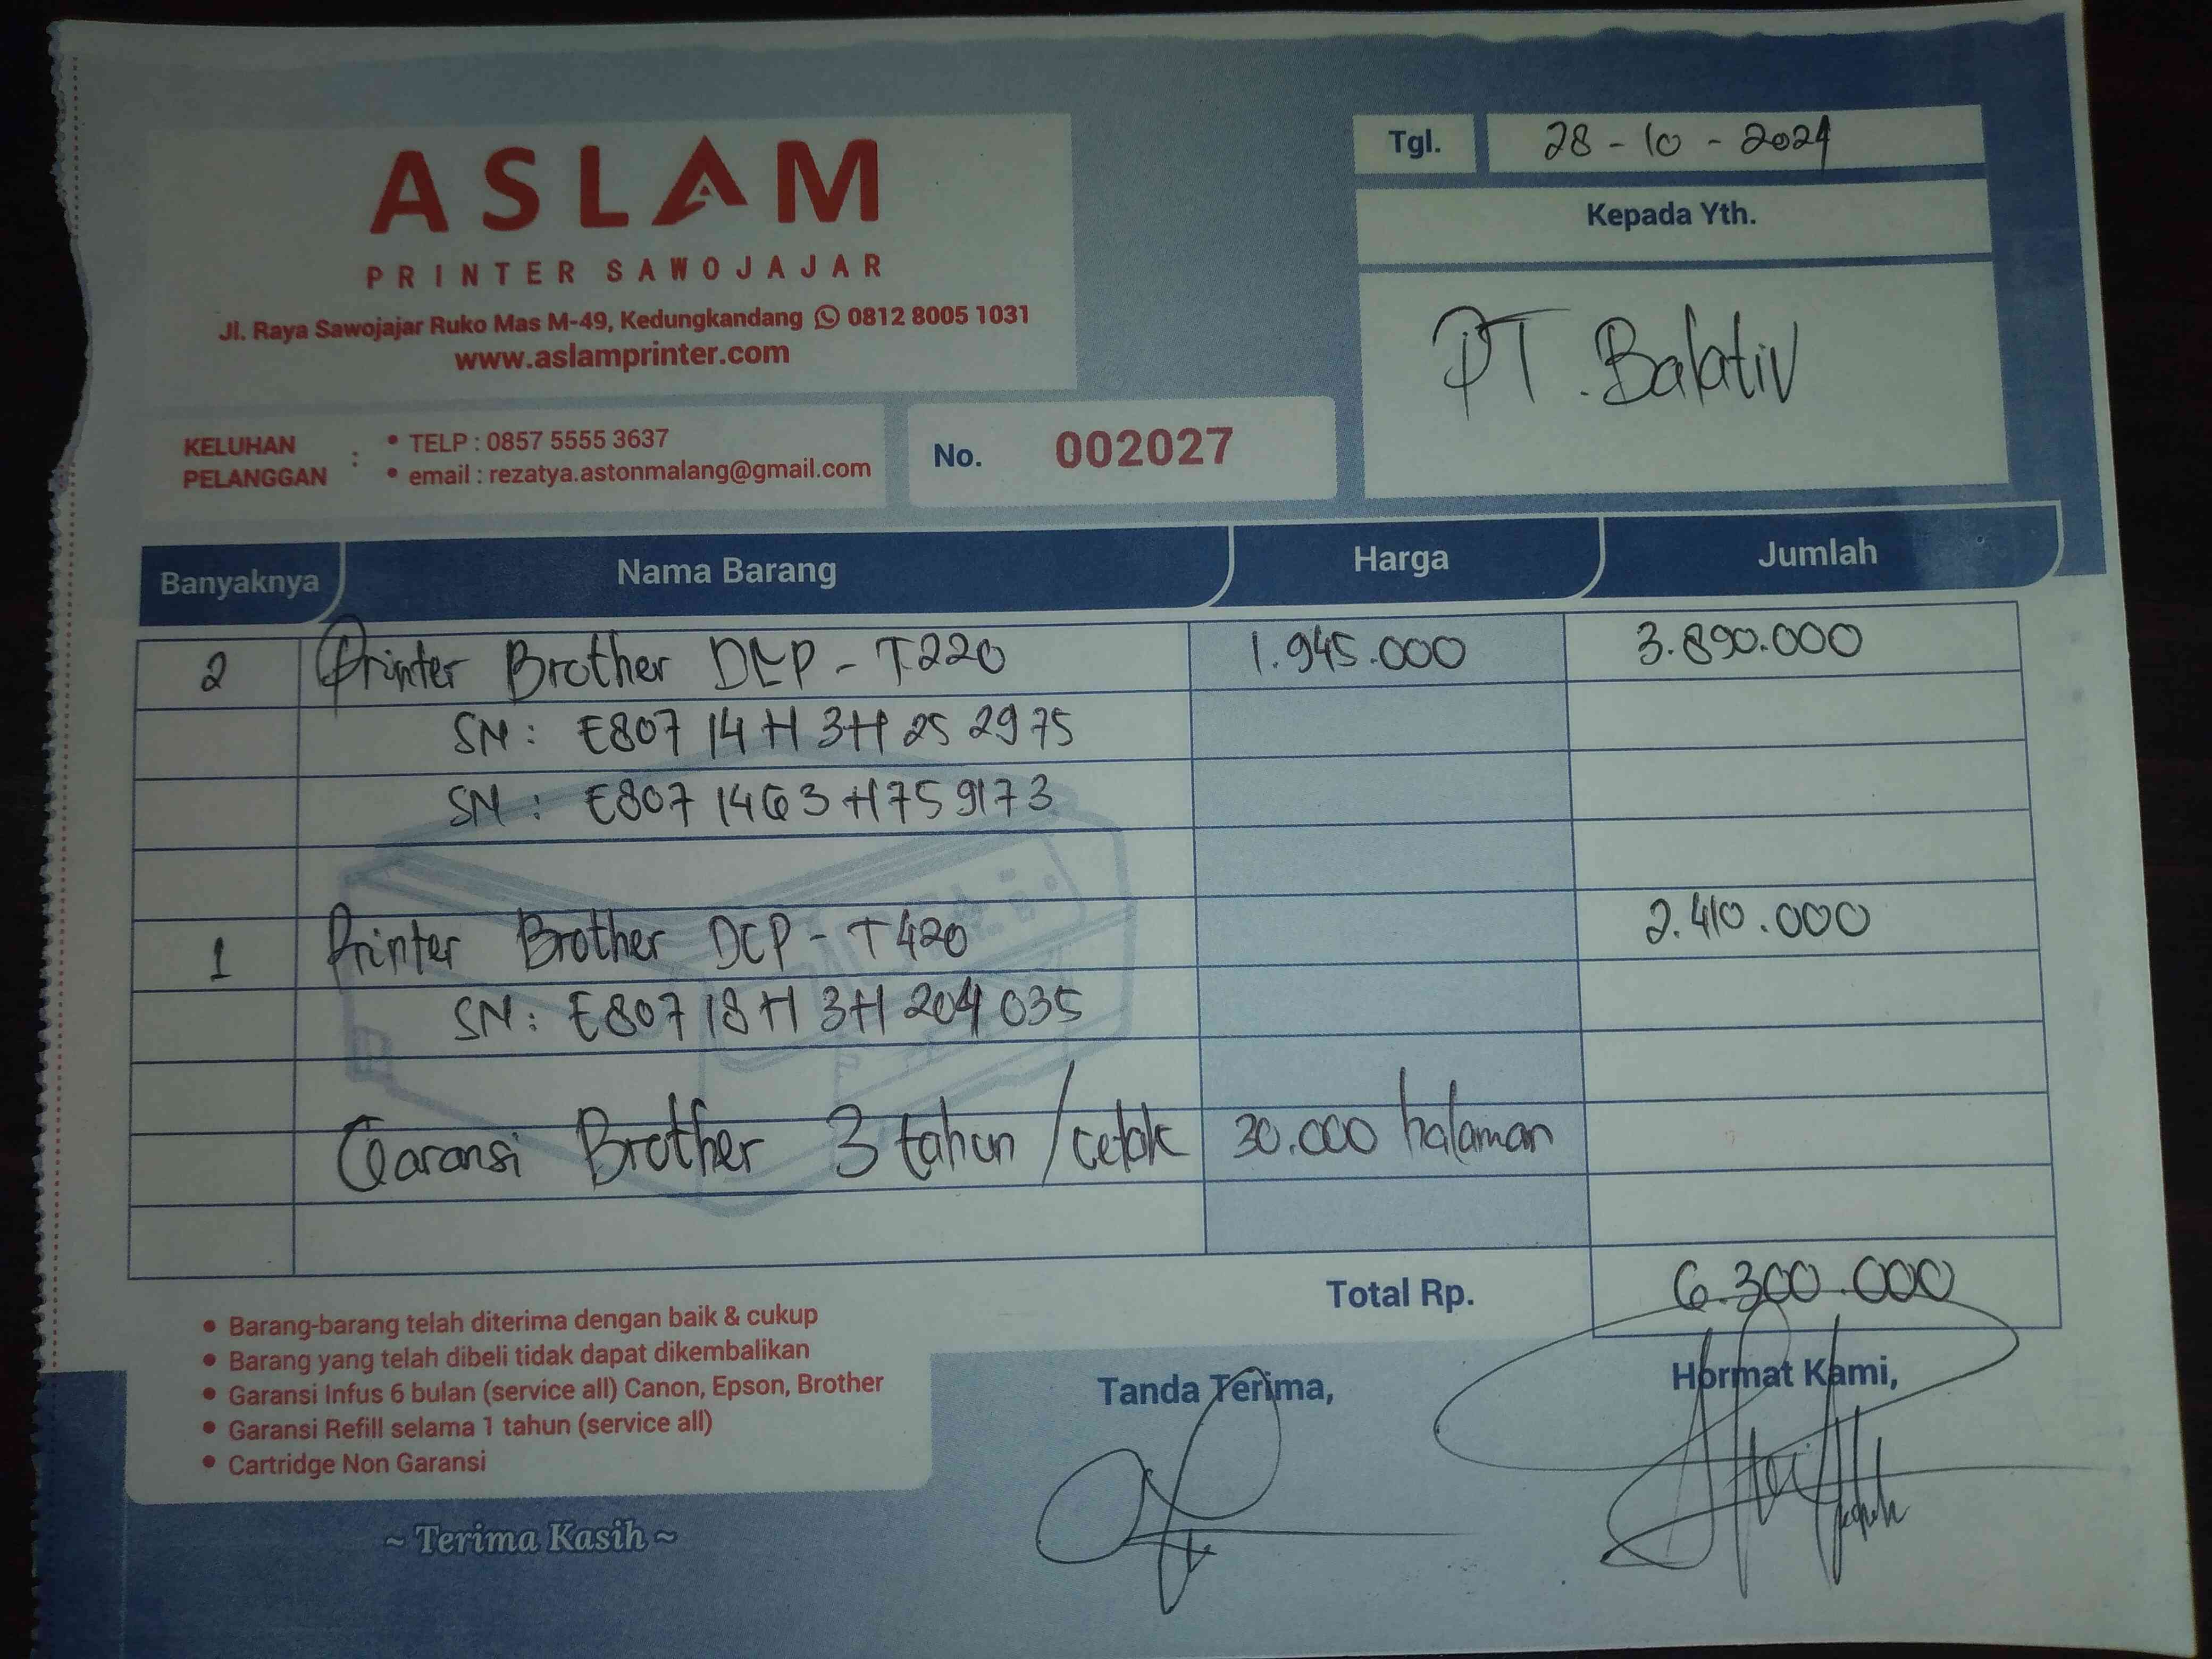 ASLAM
PRINTER SAWOJAJAR
Jl. Raya Sawojajar Ruko Mas M-49, Kedungkandang 0812 8005 1031
www.aslamprinter.com
KELUHAN PELANGGAN :
• TELP : 0857 5555 3637
• email : rezatya.astonmalang@gmail.com
No. 002027
Tgl. 28-10-2024
Kepada Yth.
PT. Balativ
Banyaknya Nama Barang Harga Jumlah
2 Printer Brother DCP-T220 1.945.000 3.890.000
SN: E80714H3H252975
SN: E80714G3H759173
1 Printer Brother DCP-T420 2.410.000
SN: E80718H3H204035
Garansi Brother 3 tahun / cetak 30.000 halaman
Total Rp. 6.300.000
• Barang-barang telah diterima dengan baik & cukup
• Barang yang telah dibeli tidak dapat dikembalikan
• Garansi Infus 6 bulan (service all) Canon, Epson, Brother
• Garansi Refill selama 1 tahun (service all)
• Cartridge Non Garansi
Tanda Terima,
Hormat Kami,
~ Terima Kasih ~